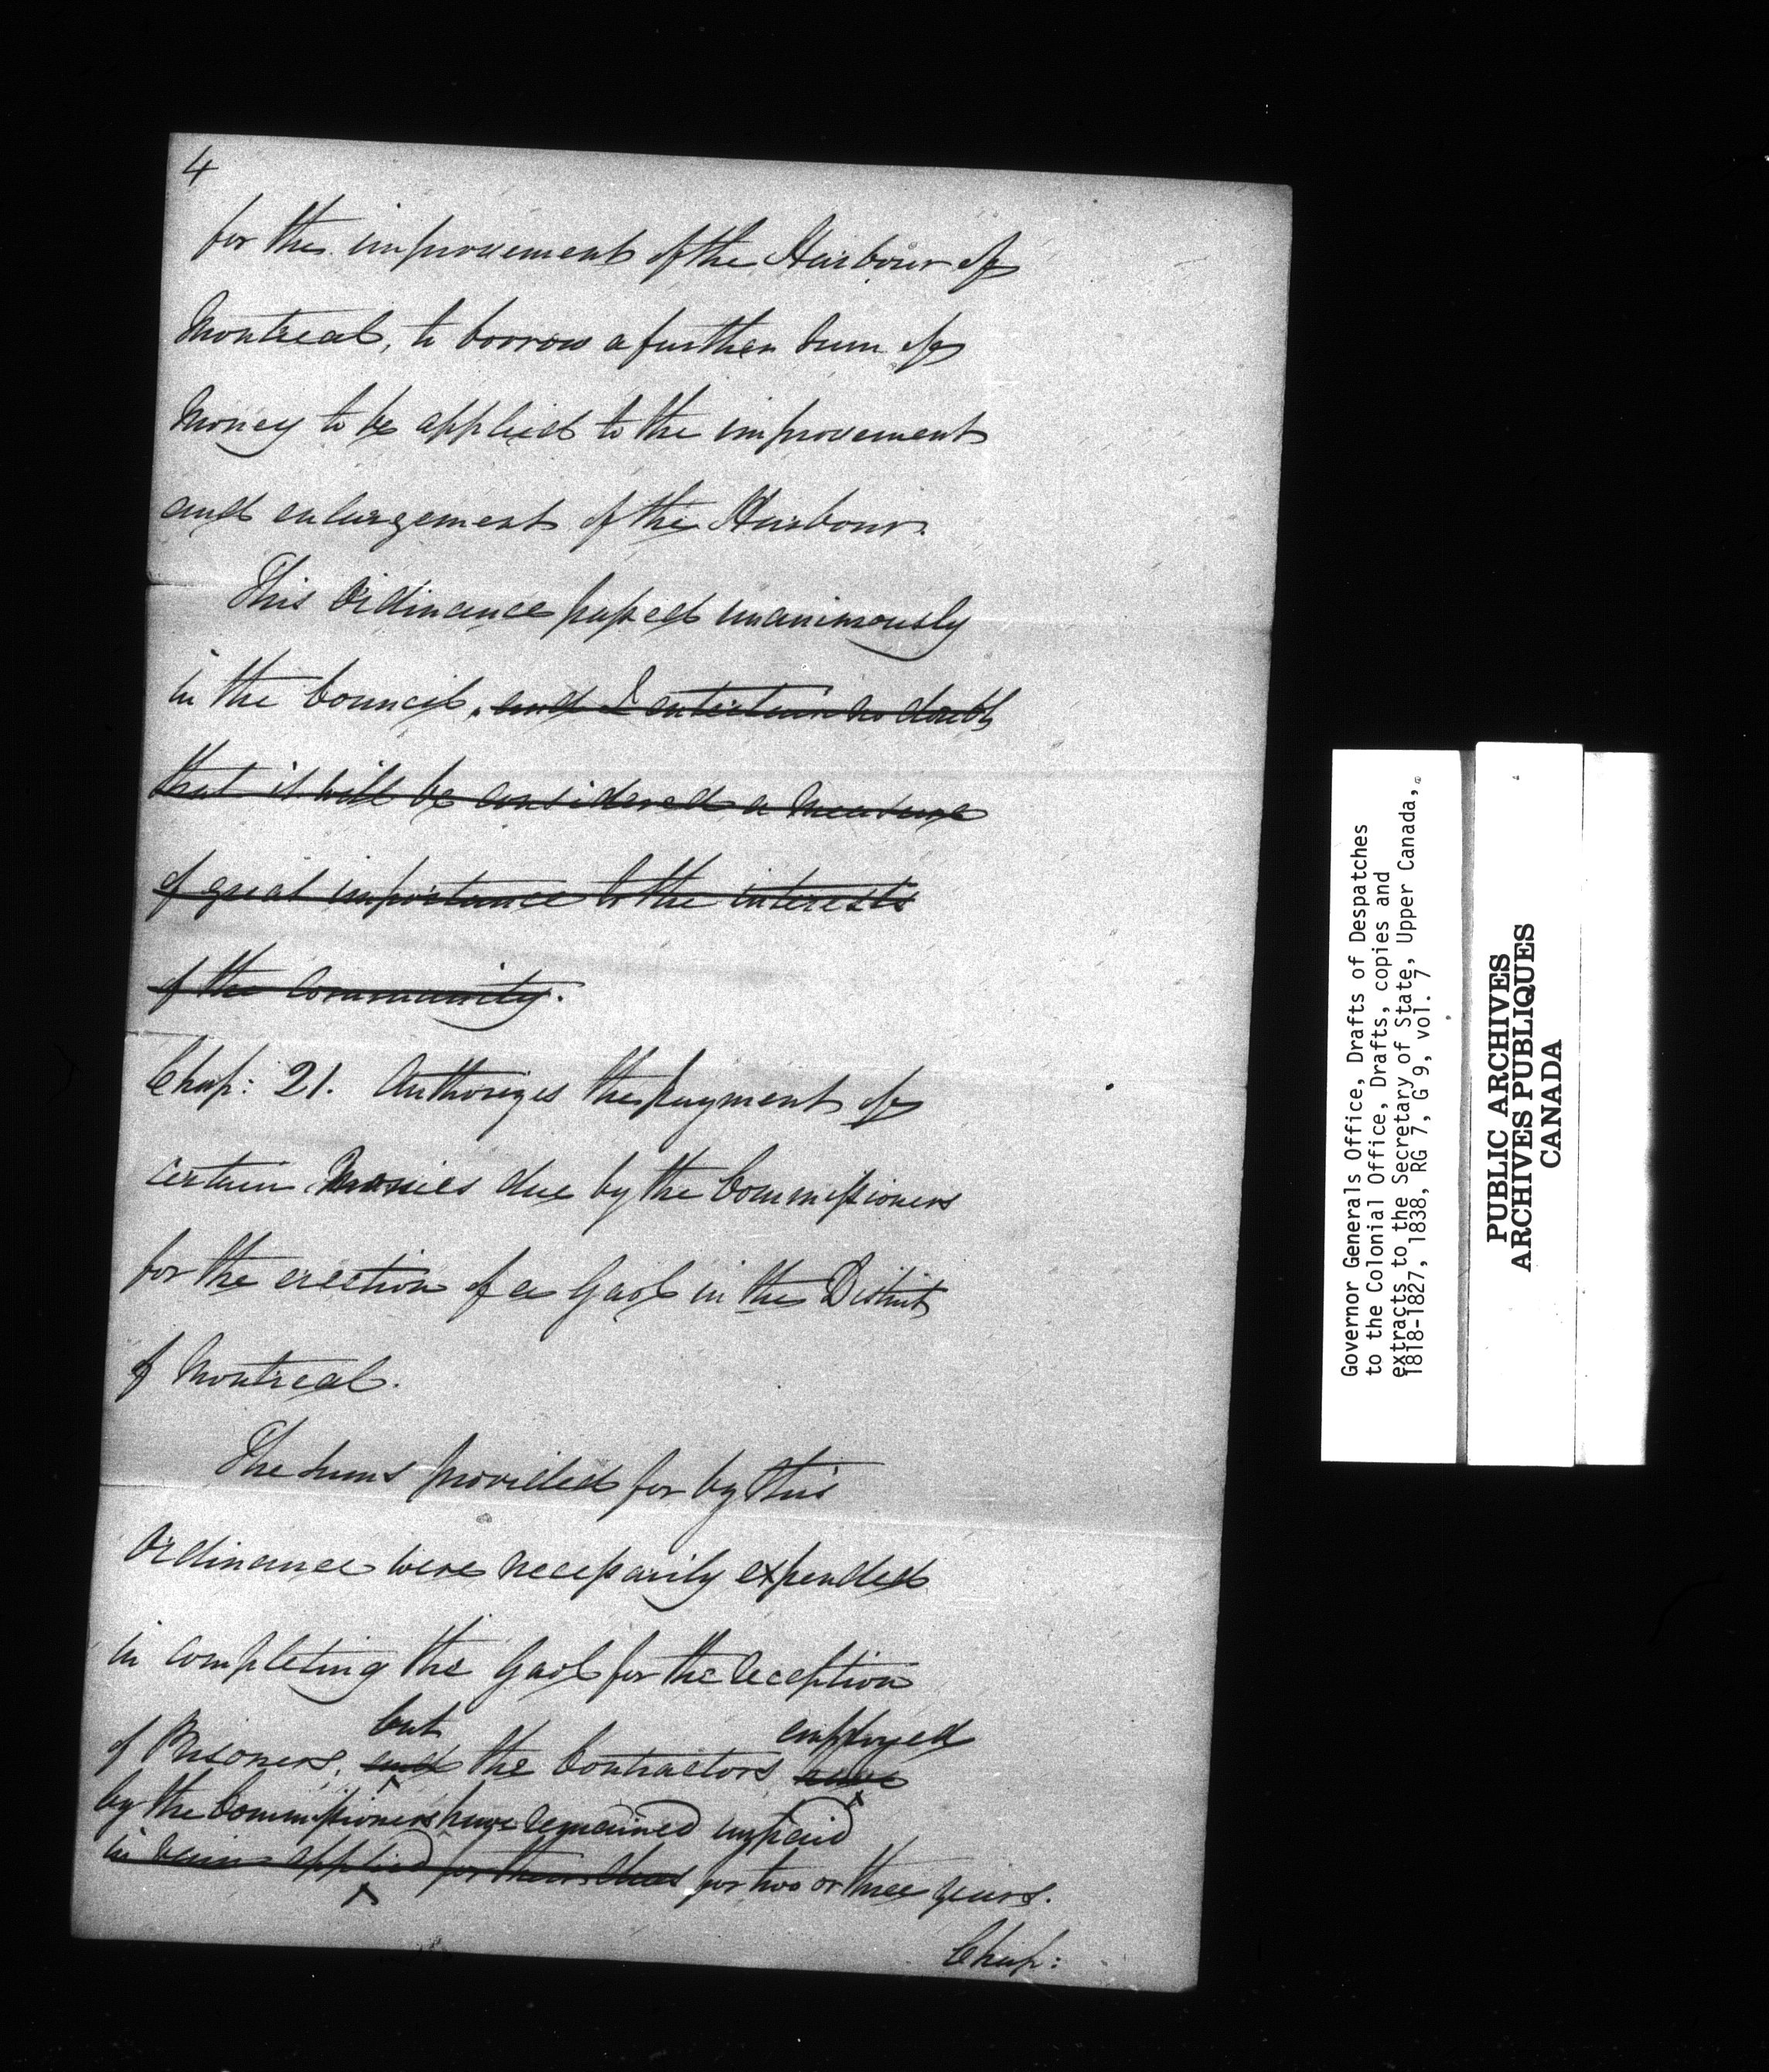 4
for the improvement of the Harbour of
Montreal, to borrow a further Sum of
Money to be applied to the improvement
and enlargement of the Harbour.
This Ordinance passed unanimously
in the Council. and I entertain no doubt
that it will be considered a measure
of great importance to the interests
of the Community.
Chap: 21. Authorizes the payment of
certain Monies due by the Commissioners
for the erection of a Gaol in the District
of Montreal.
The sums provided for by this
Ordinance were necessarily expended
in completing the Gaol for the reception
but employed
of Prisoners, and the Contractors have
by the Commissioners have remained unpaid
in vain applied for for two or three years.
Chap:
Governor Generals Office, Drafts of Despatches
to the Colonial Office, Drafts, copies and
extracts to the Secretary of State, Upper Canada,
1818-1827, 1838, RG 7, G 9, vol. 7
PUBLIC ARCHIVES
ARCHIVES PUBLIQUES
CANADA